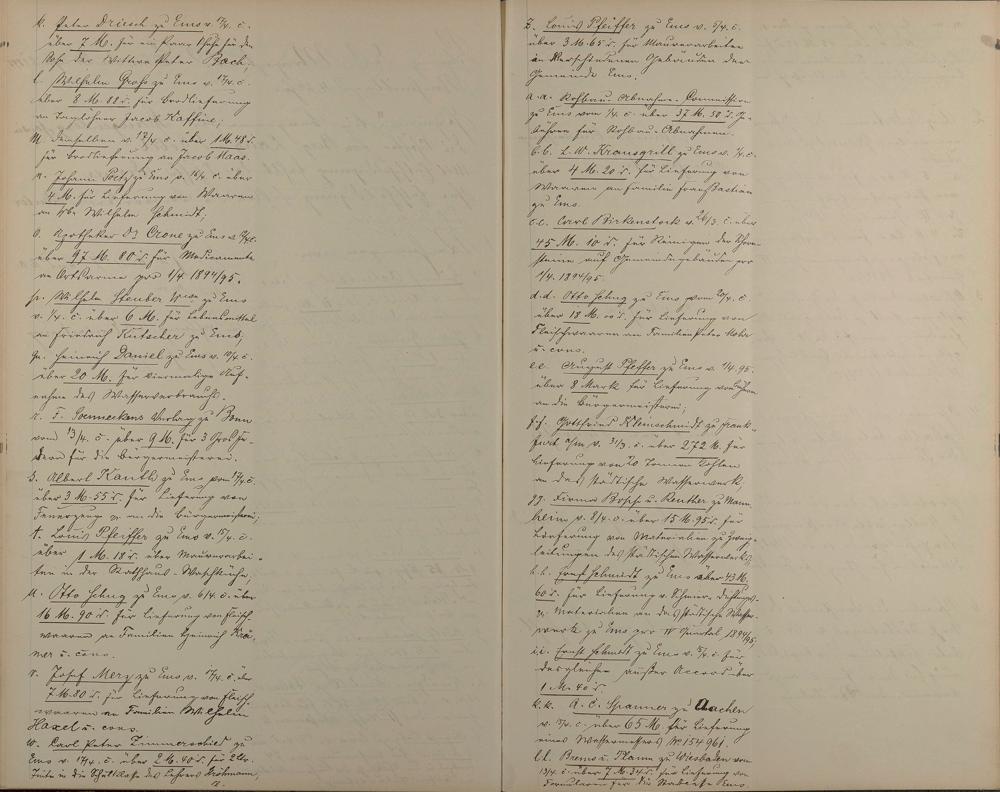 k. Peter Driesch zu Ems v. 17/4. c.
über 7 M. für ein Paar Schuhe für den
Sohn der Wittwe Peter Bach.
l. Wilhelm Groß zu Ems v. 17/4. c.
über 8 M. 88 d. für Brodlieferung
an Taglöhner Jacob Kaffine;
m. Demselben v. 17/4 c. über 1 M. 48 d.
für Brodlieferung an Jacob Maas.
n. Johann zu Ems v. c. über
4 M. für Lieferung von Waaren
an Wilhelm Schmidt;
o. Apotheker Dr Crone zu Ems v. c.
über 97 M. 80 d. für Medicamente
an Ortsarme pro 1/4 1894/95.
p. Wilhelm Steuber Wwe zu Ems
v. 1/4. c. über 6 M. für Lebensmittel
an Friedrich Kutscher zu Ems;
q. Heinrich Daniel zu Ems v. c.
über 20 M. für viermalige Auf-
nahme des Wasserverbrauchs.
r. F. Soenneckens Verlag zu Bonn
vom 13/4. c. über 9 M. für 3
für die Bürgermeisterei.
s. Albert Kauth zu Ems vom 17/4. c.
über 3 M. 55 d. für Lieferung von
Feuerzeug pp an die Bürgermeisterei;
t. Louis Pfeiffer zu Ems v. 17/4. c.
über 1 M. 18 d. über Maurerarbei-
ten in der Rathhaus-Waschküche;
u. Otto zu Ems v. 6/4. c. über
16 M. 90 d. für Lieferung von Fleisch-
waaren an Familien Heinrich Krä-
mer u. cons.
v. Josef Merz zu Ems v. 17/4. c. über
7 M. 80 d. für Lieferung von Fleisch-
waaren an Familien Wilhelm
Haxel u. cons.
w. Carl Peter Zimmerschied zu
Ems v. 17/4. c. über 2 M. 40 d. für 2 Ltr.
Tinte in die Schulklasse des Lehrers
z. Louis Pfeiffer zu Ems v. 9/4. c.
über 3 M. 65 d. für Maurerarbeiten
an verschiedenen Gebäuden der
Gemeinde Ems.
a.a. Rohbau-Abnahme-Commission
zu Ems vom 1/4. c. über 37 M. 50 d. Ge-
bühren für Rohbau-Abnahmen.
b.b. L. W. Kransgrill zu Ems v. 1/4. c.
über 4 M. 20 d. für Lieferung von
Waaren an Familie Franz Bastian
zu Ems.
c.c. Carl Birkenstock v. 26/3. c. über
45 M. 10 d. für Reinigen der Schorn-
steine auf Gemeindegebäuden pro
1/4. 1894/95
d.d. Otto zu Ems vom c.
über 18 M. d. für Lieferung von
Fleischwaaren an Familien Peter
u. cons.
e.e. August Pfeffer zu Ems v. 1/4. 95.
über 8 Mark für Lieferung von
an die Bürgermeisterei;
f.f. Gottfried Kleinschmidt zu Frank-
furt a/m v. 31/3. c. über 272 M. für
Lieferung von 20 Tonnen Kohlen
an das städtische Wasserwerk.
gg. Firma Bopp u. Reuther zu Mann-
heim v. 8/4. c. über 15 M. 95 d. für
Lieferung von Materialien zu Zweig-
leitungen des städtischen Wasserwerks;
h.h. Ernst Schmidt zu Ems über 43 M.
60 d. für Lieferung v. Schmier-, Dichtungs-
pp Materialien an das städtische Wasser-
werk zu Ems pro IV Quartal 1894/95
i.i. Ernst Schmidt zu Ems v. c. für
desgleichen außer Accord über
1 M. 40 d.
k.k. A. C. Spanner zu Aachen
v. c. über 65 M. für Lieferung
eines Wassermessers No 154961.
l.l. Brems u. Plaum zu Wiesbaden vom
13/4. c. über 7 M. 34 d. für Lieferung von
Formularen für die Stadtcasse Ems.